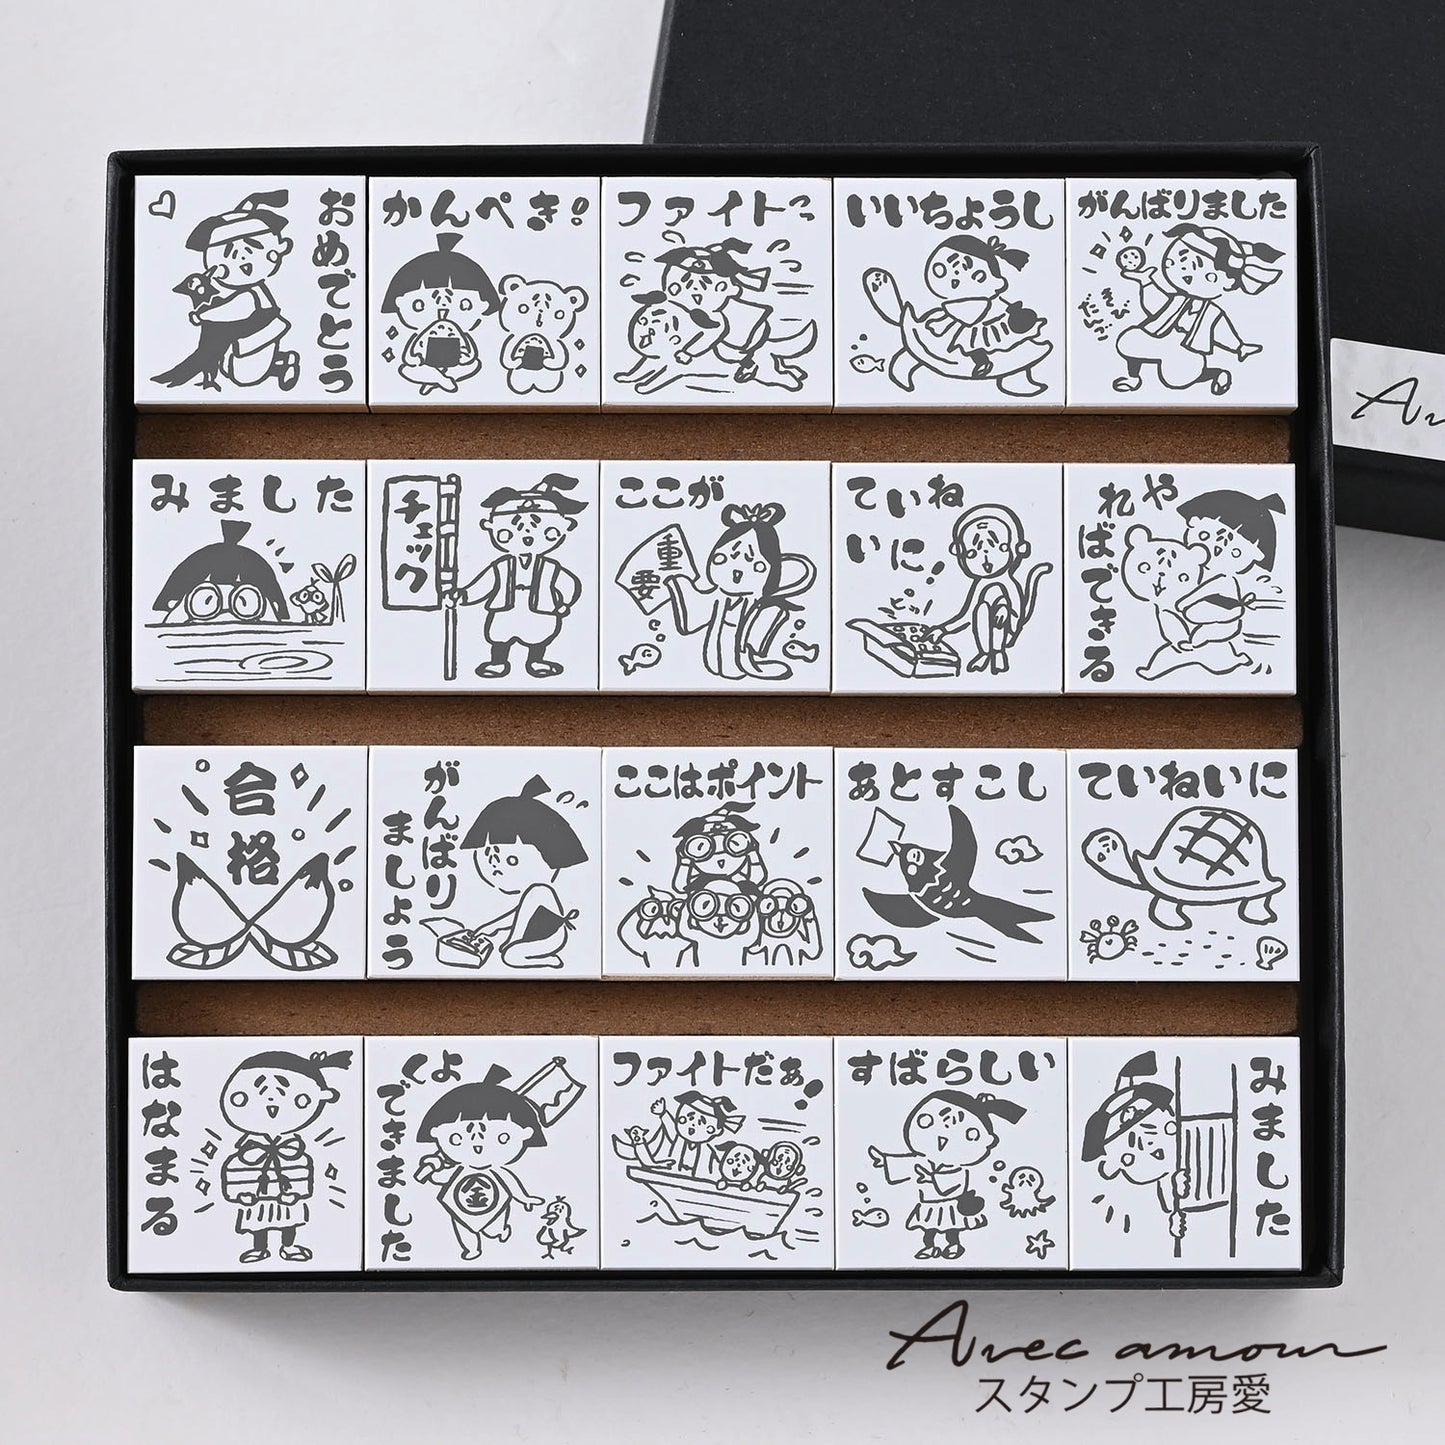 おめでとう
かんぺき!
ファイトっ
いいちょうし
がんばりました
みました
チェック
ここが
重要
ていね
いに!
やれ
ばできる
合格
がんばり
ましょう
ここはポイント
あとすこし
ていねいに
はなまる
よく
できました
金
ファイトだぁ!
すばらしい
みました
Avec amour
スタンプ工房愛